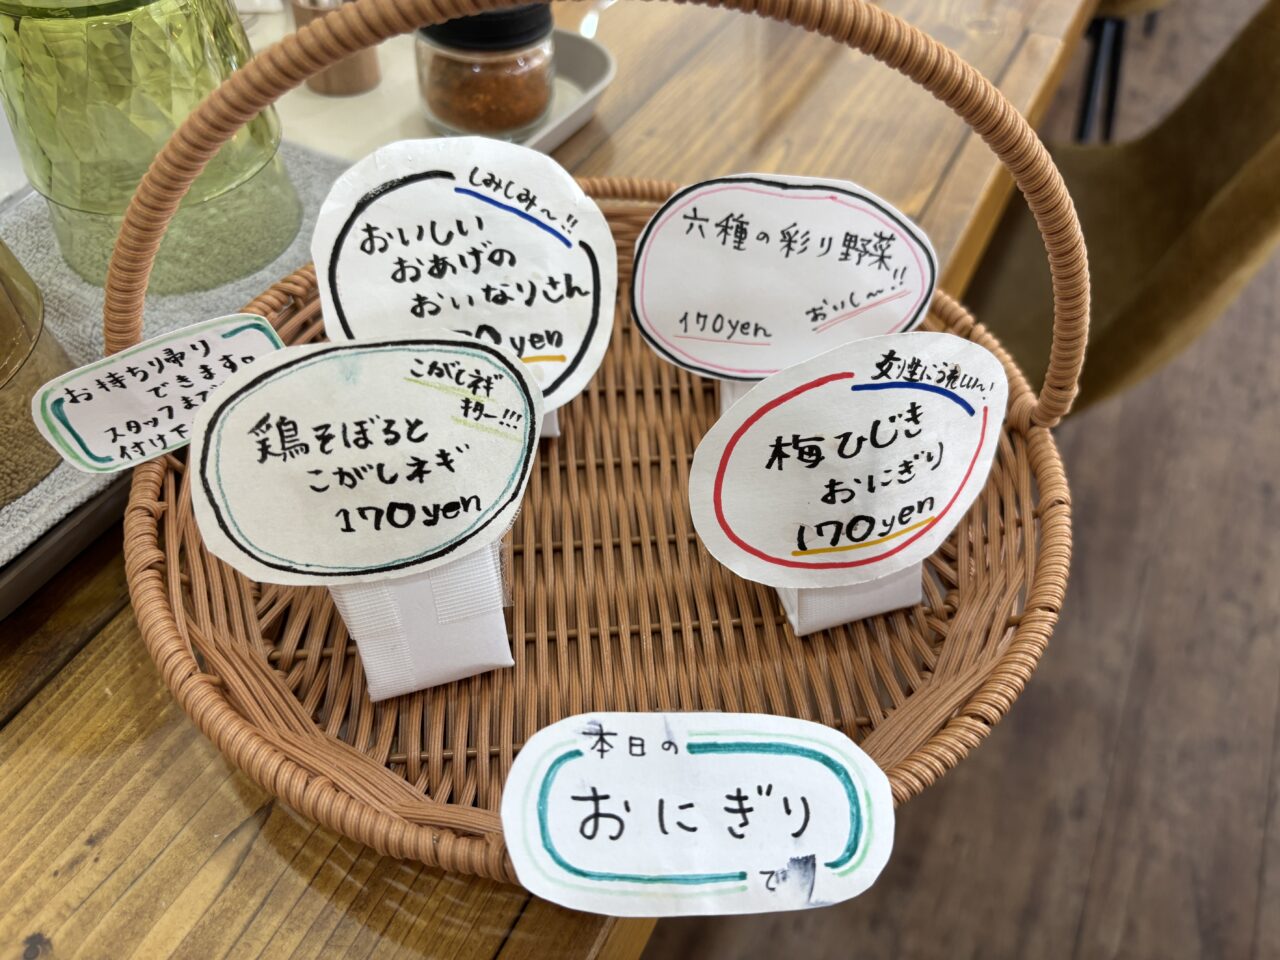 しみしみ〜!!
おいしい
おあげの
おいなりさん
0yen
六種の彩り野菜
おいし〜!!
170yen
お持ち帰り
できます。
スタッフまで
付け下
こがしネギ
キター!!!
鶏そぼろと
こがしネギ
170yen
女性にうれしい!
梅ひじき
おにぎり
170yen
本日の
おにぎり
で